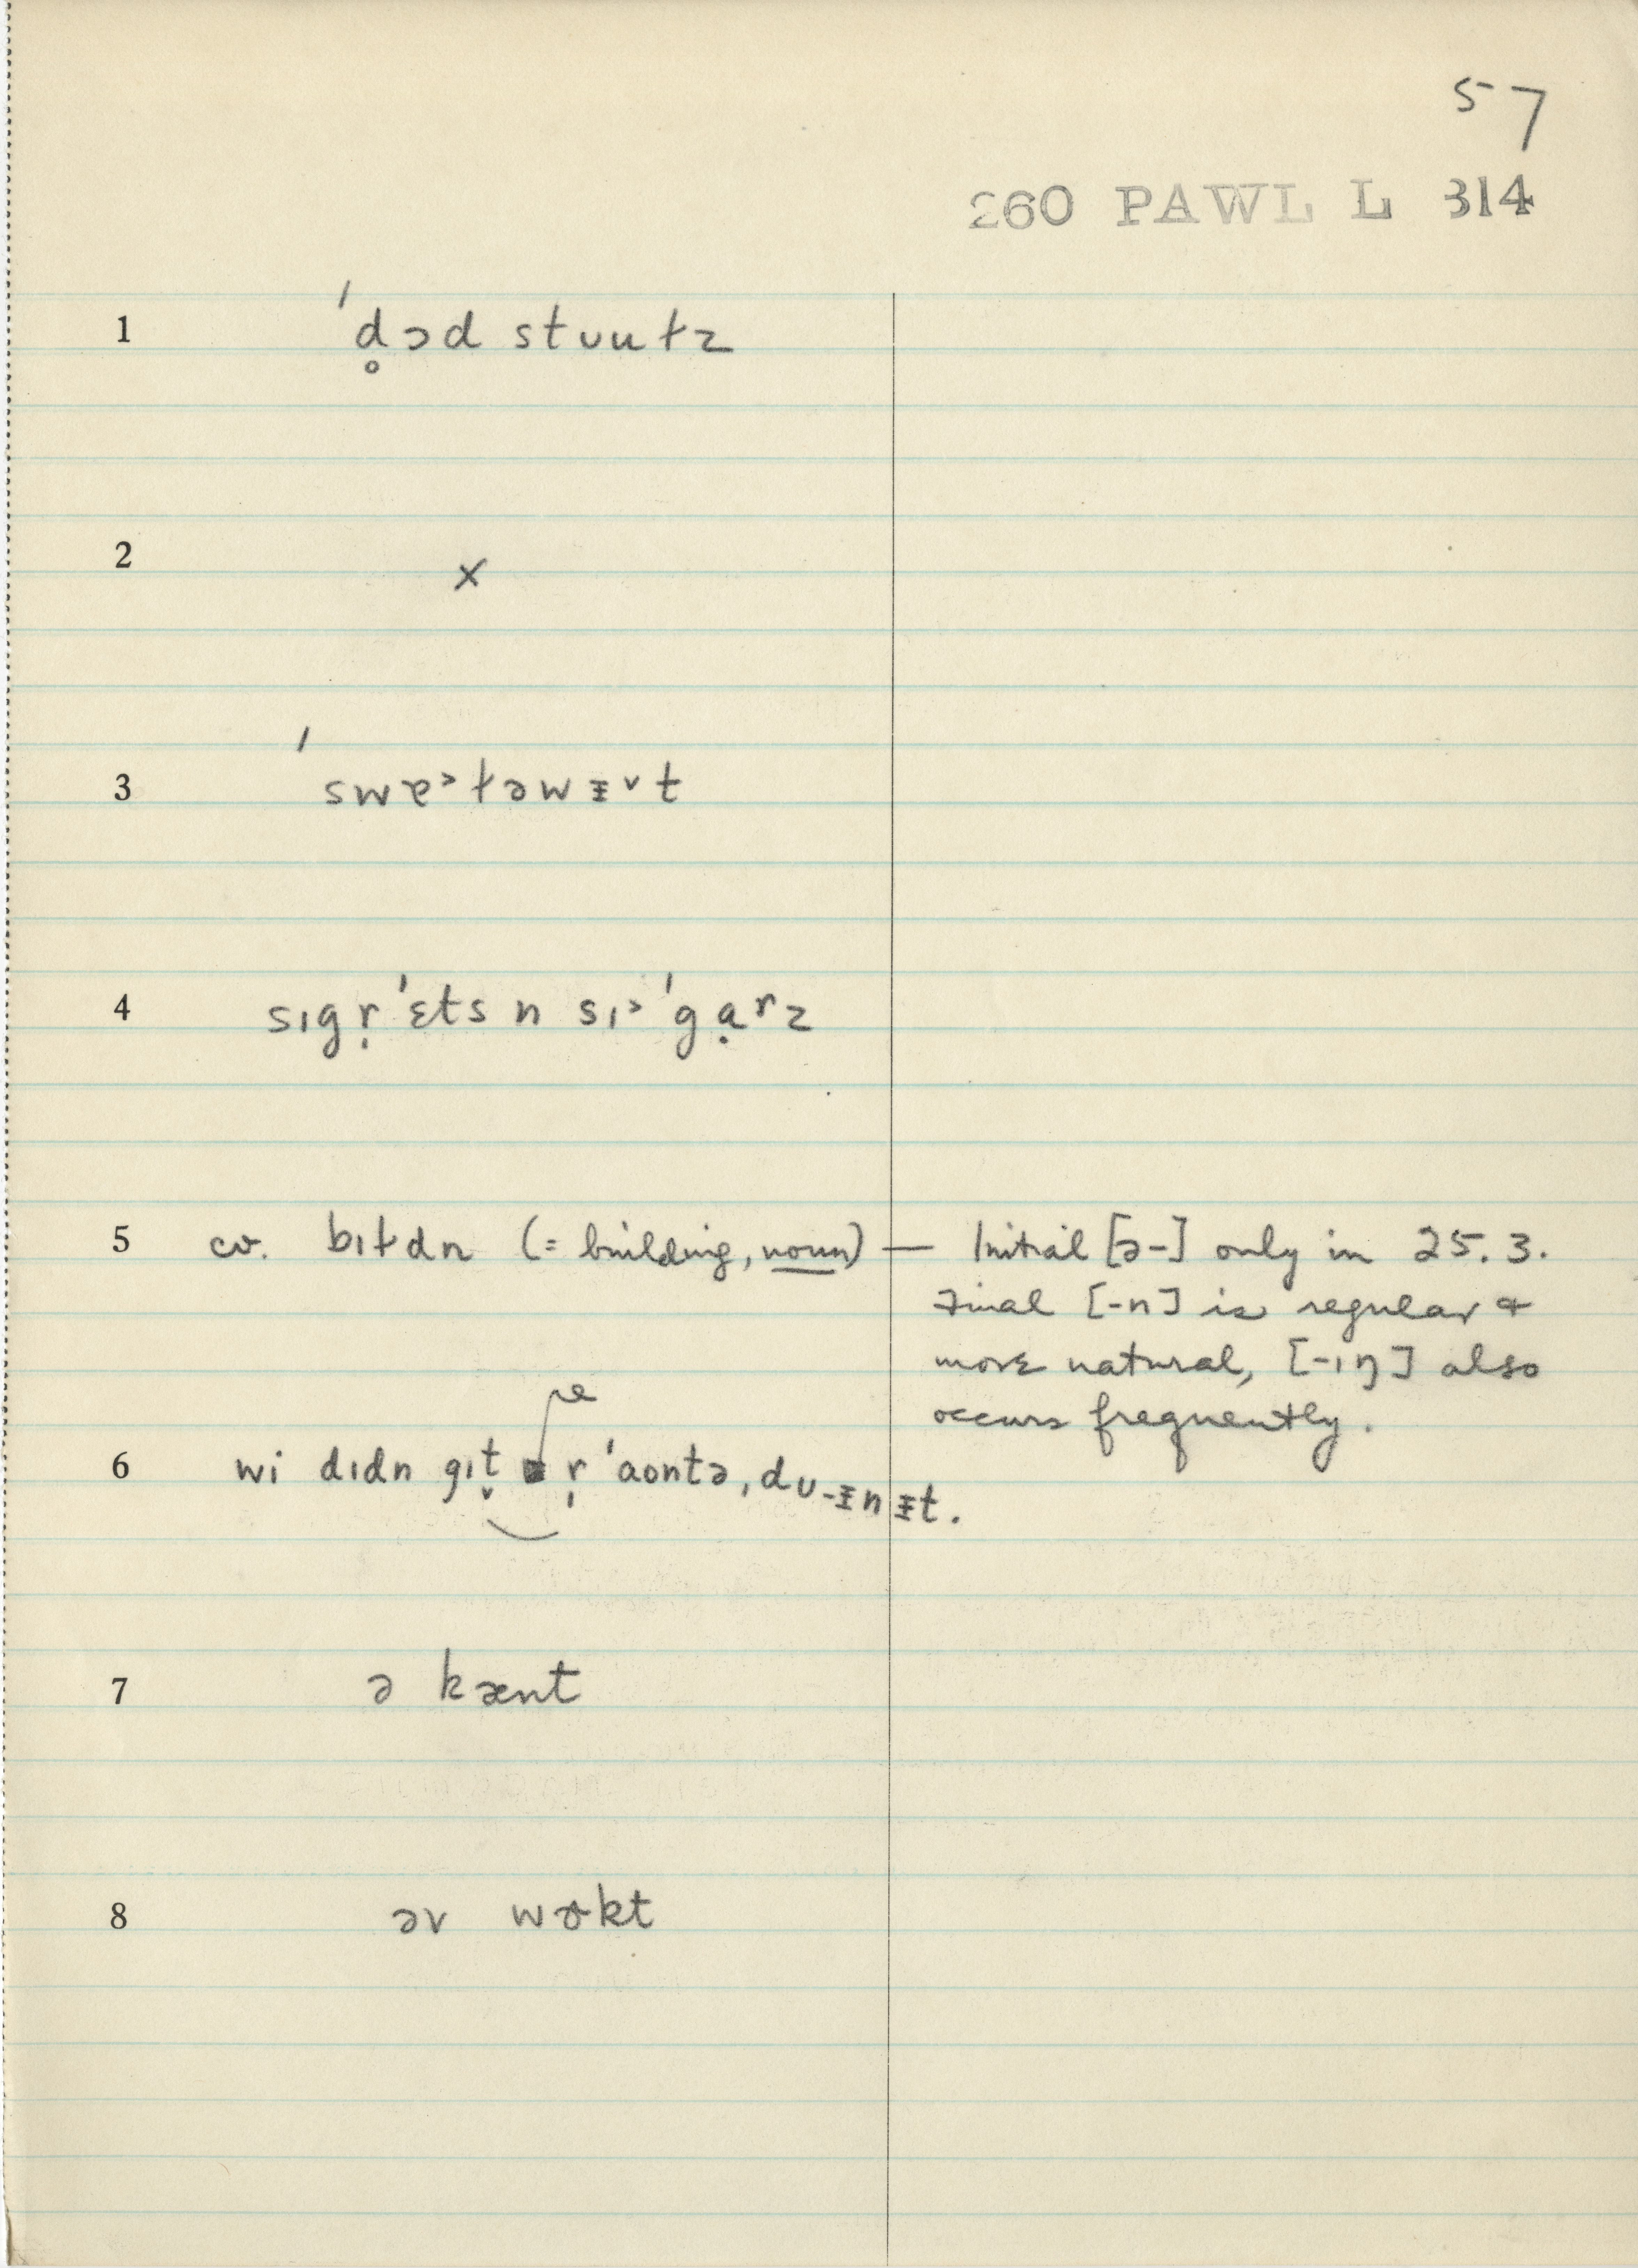 57
260 PAWL L 314
1 ˈd̥ɔd stuuɫz
2 x
3 ˈswɐ˃ɫəwᵻ˅t
4 sɪgr̩ˈɛts n sɪ˃ˈgạʳz
5 cv. bɪɫdn (= building, noun) — Initial [ə-] only in 25.3.
Final [-n] is regular &
more natural, [-ɪŋ] also
occurs frequently.
6 wi dɪdn gɪt̬ r̩ ˈaontə, du-ᵻnᵻt.
7 ə kænt
8 əv wɚkt